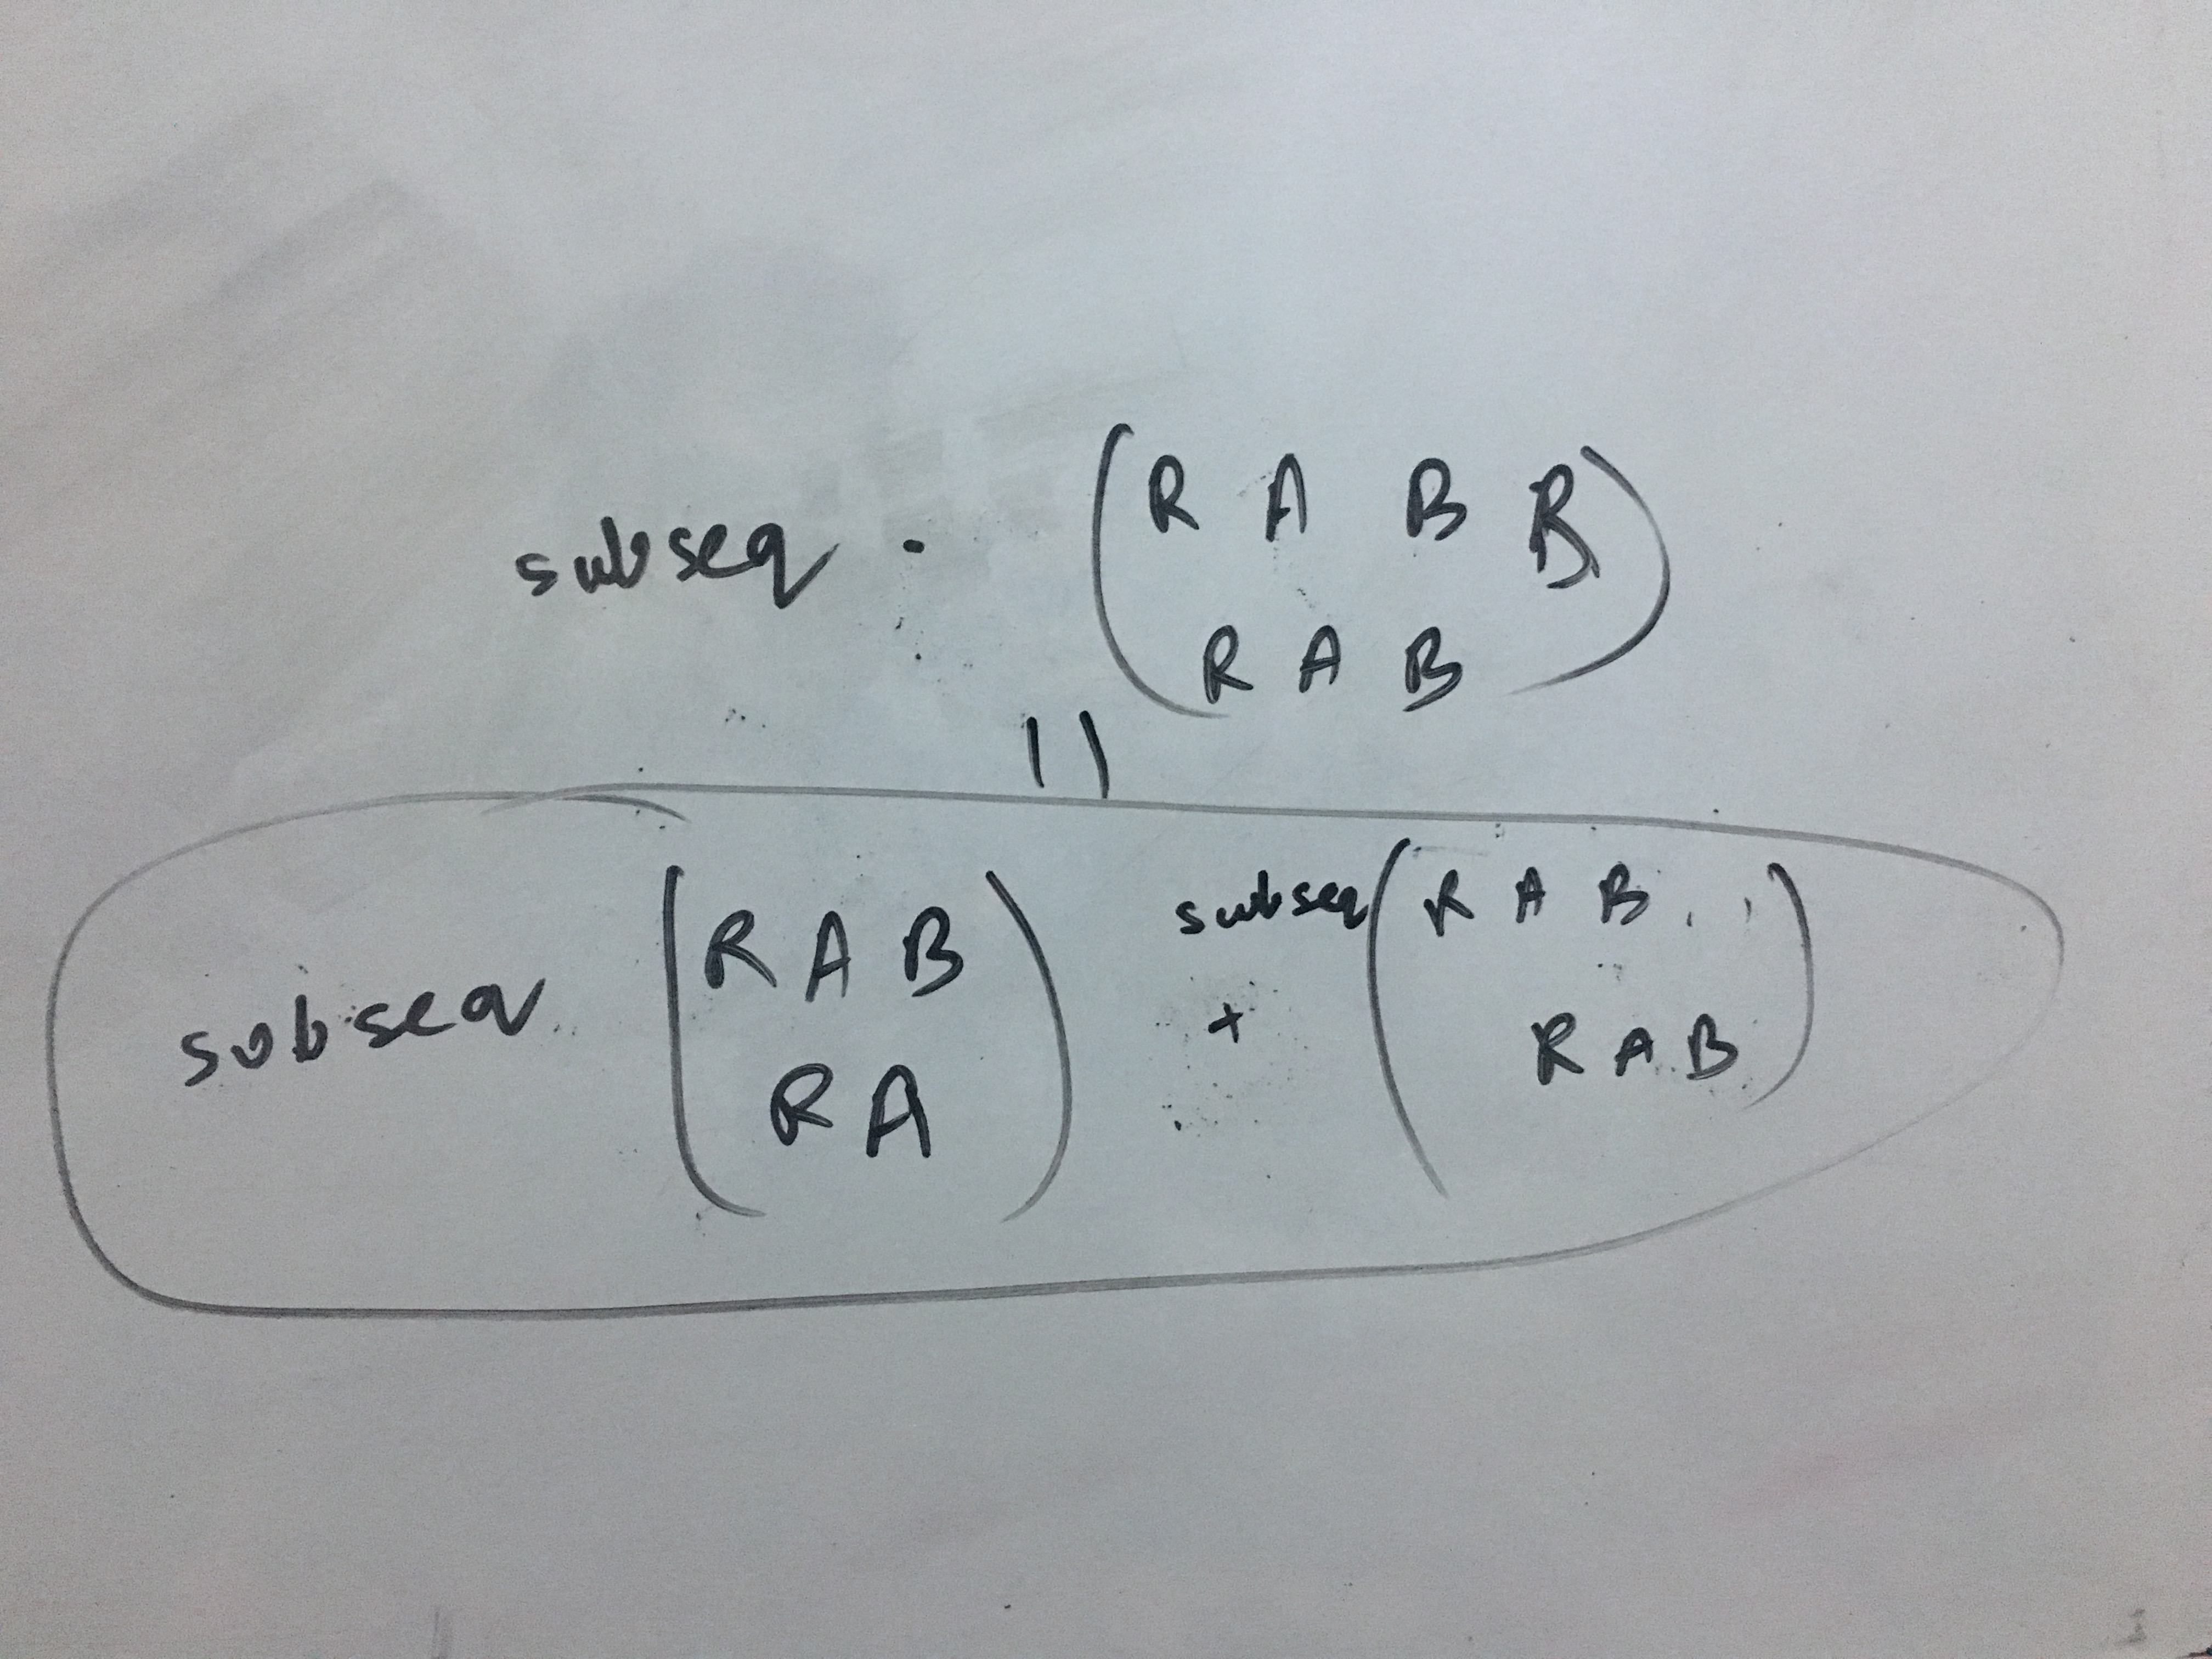 subseq . ( R A B B
R A B )
||
subseq ( R A B
R A ) + subseq ( R A B . .
R A B )